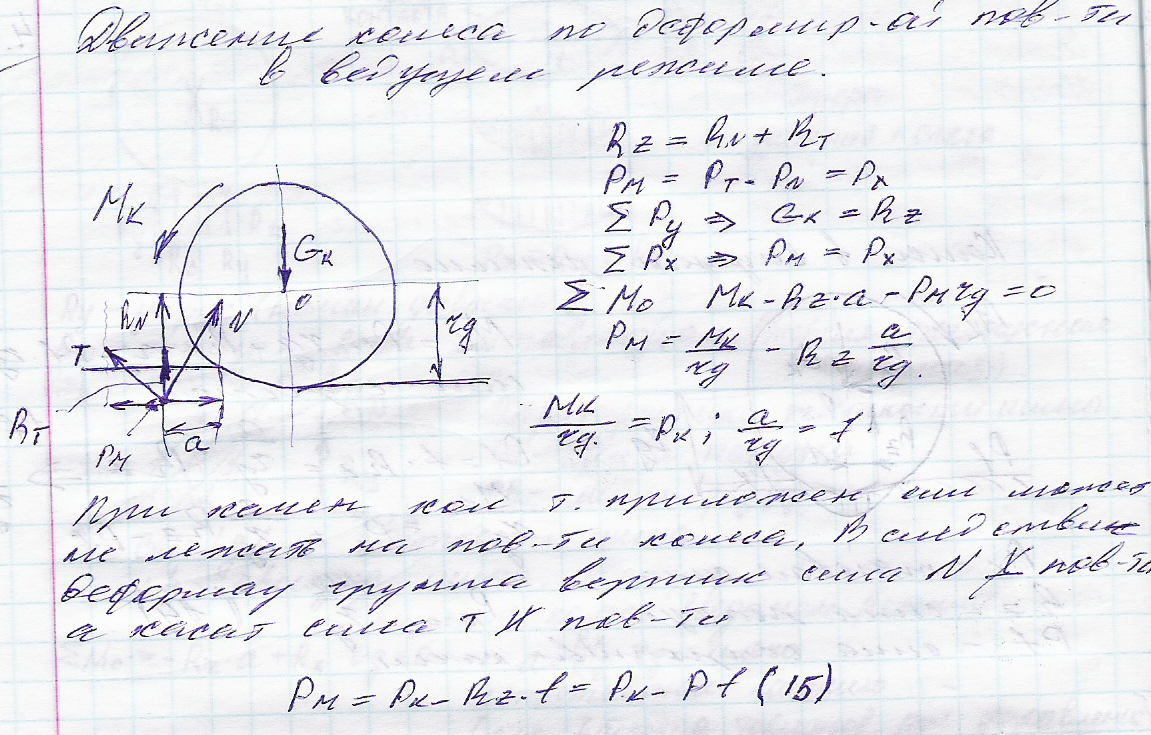 Движение колеса по деформир-ой пов-ти
в ведущем режиме.
Rz = RN + RT
PM = PT - PN = Px
ΣPy ⇒ GK = Rz
ΣPx ⇒ PM = Px
ΣMo MK - Rz·a - PM rg = 0
PM = MK/rg - Rz a/rg.
MK/rg. = PK; a/rg = f.
MK
GK
O
RN
N
T
rg
RT
PM
a
При качен кол т. приложен сил может
не лежать на пов-ти колеса. В следствии
деформац грунта вертик сила N пов-ти
а касат сила T ∦ пов-ти
PM = PK - Rz·f = PK - Pf (15)